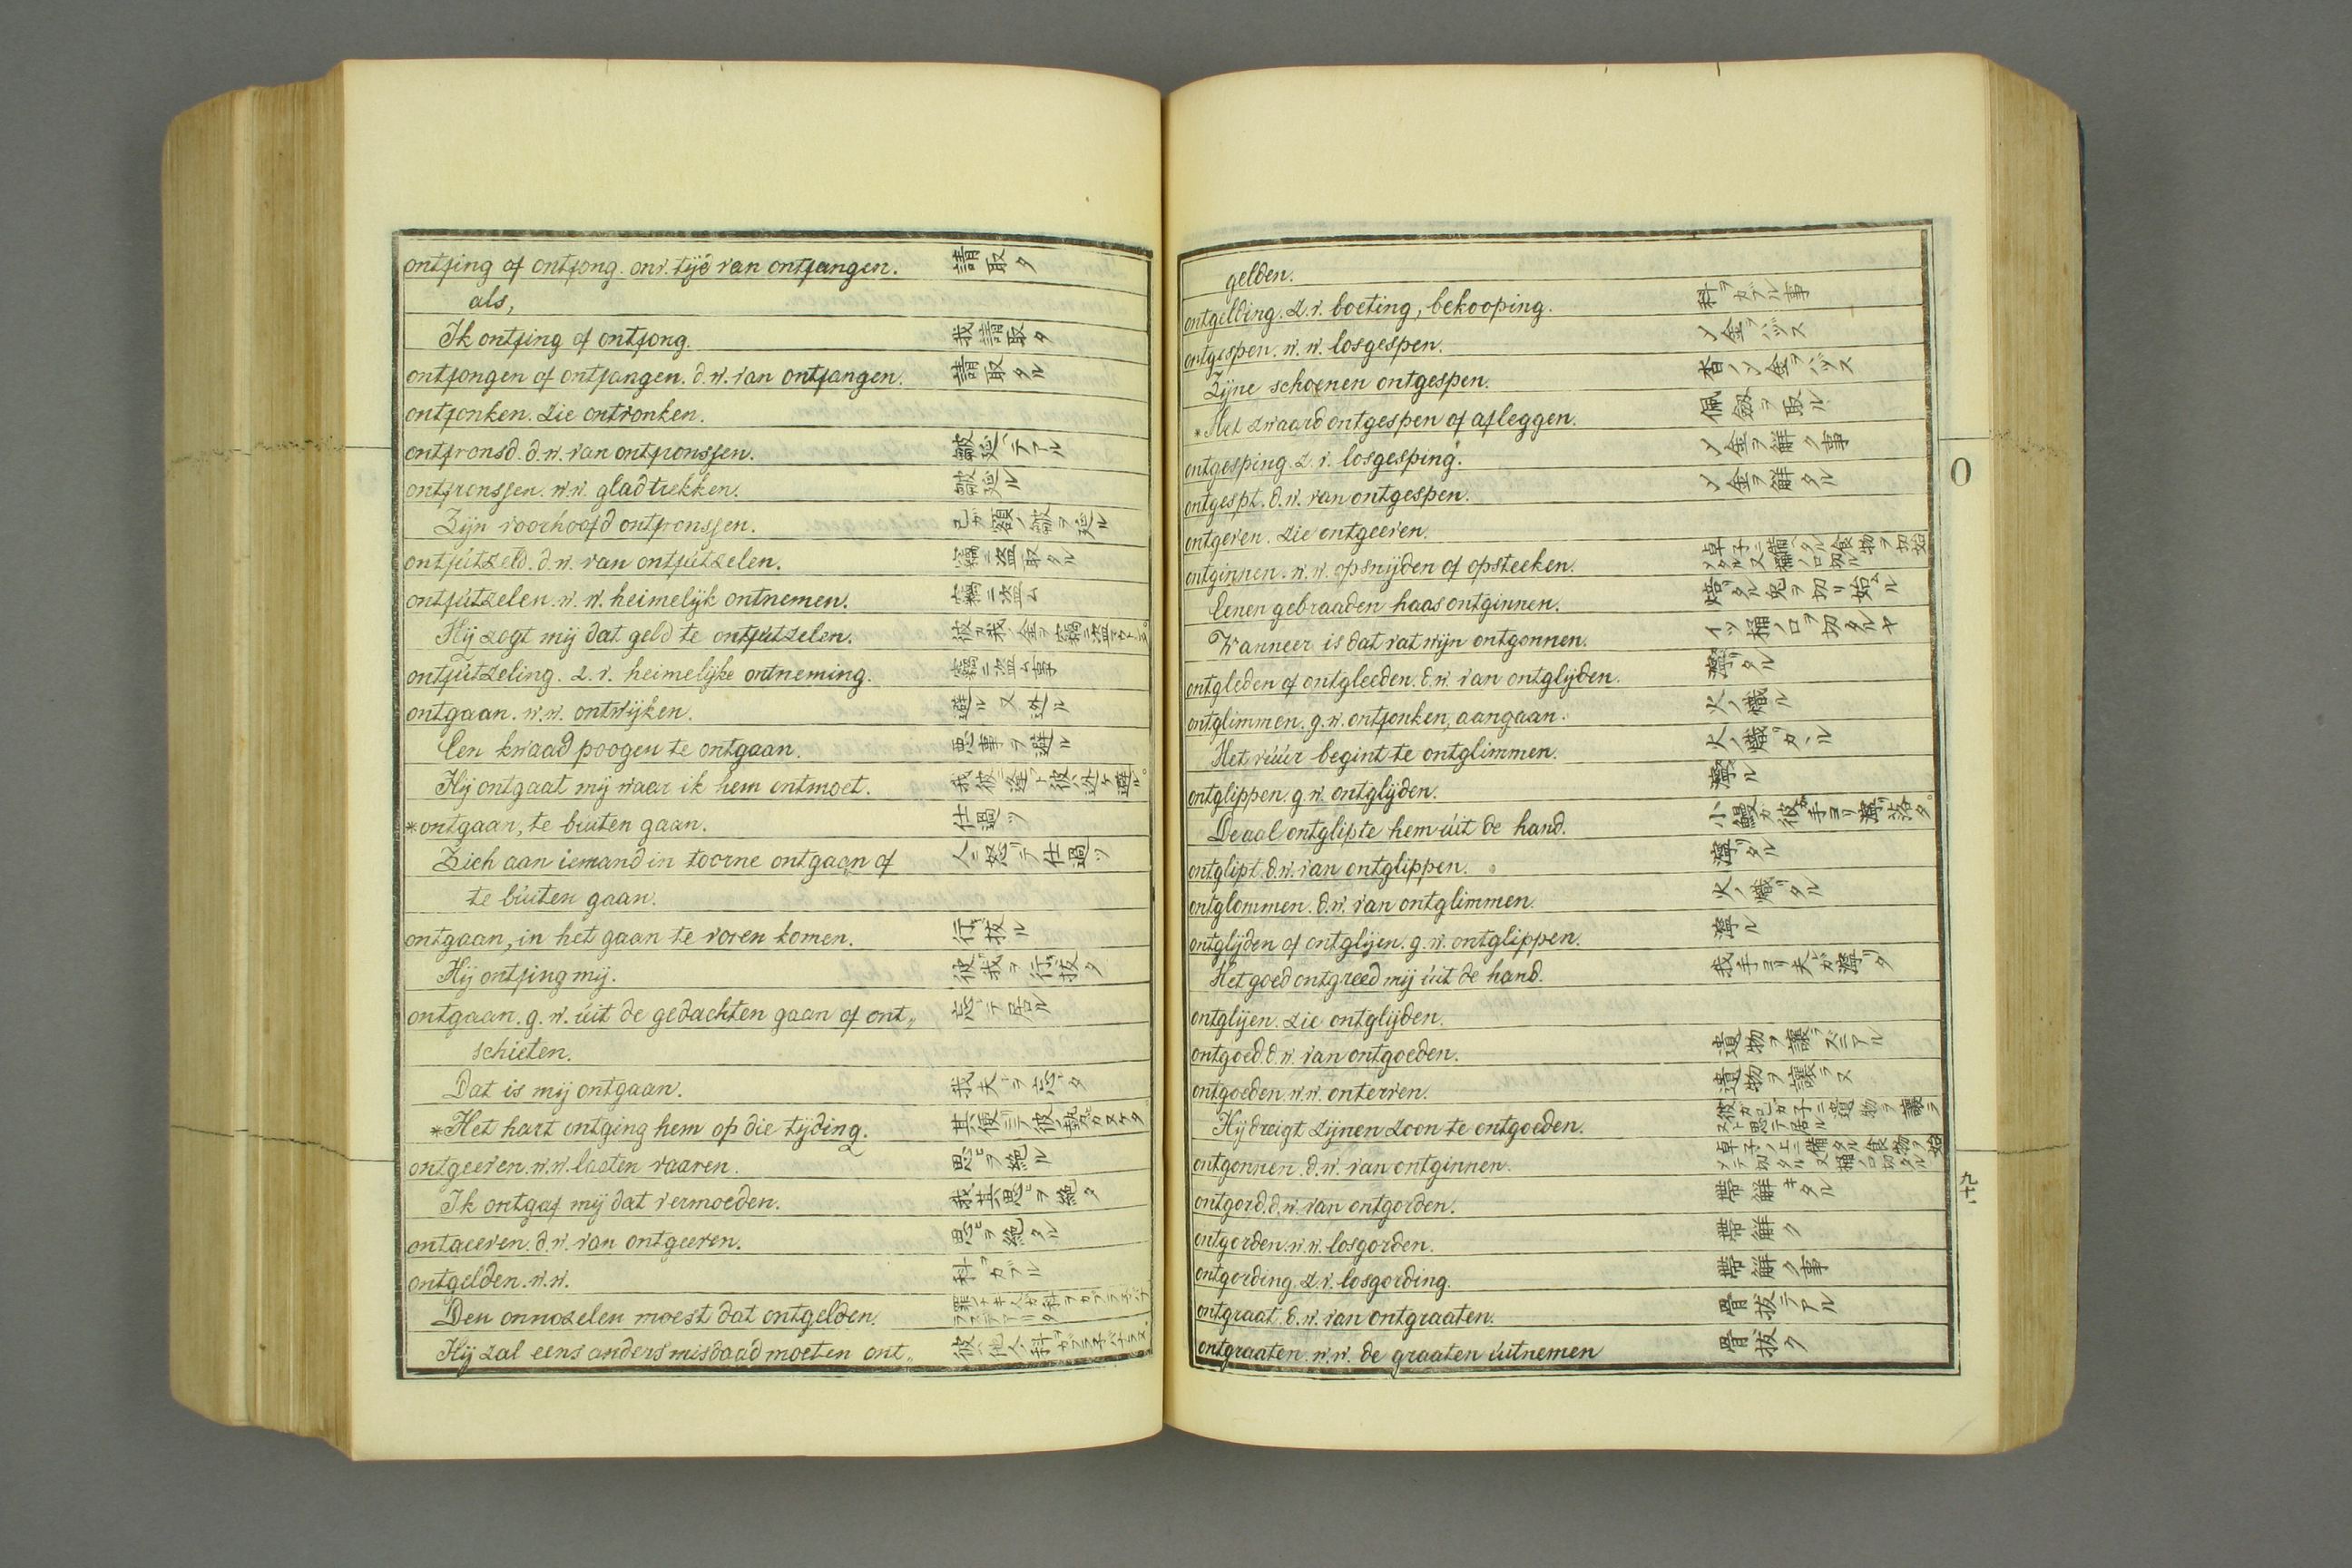 ontfing of ontfong. onv. tijd van ontfangen. 請取タ
als,
Ik ontfing of ontfong. 我請取タ
ontfongen of ontfangen. d.w. van ontfangen. 請取タル
ontfonken. zie ontvonken.
ontfronsd. d.w. van ontfronssen. 皺延テアル
ontfronssen. w.w. gladtrekken. 皺延ル
Zijn voorhoofd ontfronssen. 己ガ額ノ皺ヲ延ル
ontfútzeld. d.w. van ontfútzelen. 竊ニ盗取タル
ontfútzelen. w.w. heimelijk ontnemen. 竊ニ盗ム
Hij zogt mij dat geld te ontfútzelen.
ontfútzeling. z.v. heimelijke ontneming. 竊ニ盗ム事
ontgaan. w.w. ontwijken. 避ル又迯ル
Een kwaad poogen te ontgaan. 悪事ヲ避ル
Hij ontgaat mij waar ik hem ontmoet.
*ontgaan, te búiten gaan. 仕過ツ
Zich aan iemand in toorne ontgaan of 人ニ怒テ仕過ツ
te búiten gaan.
ontgaan, in het gaan te voren komen. 行抜ル
Hij ontfing mij. 彼我ヲ行抜タ
ontgaan. g.w. úit de gedachten gaan of ont„ 忘テ居ル
schieten.
Dat is mij ontgaan. 我夫ヲ忘タ
*Het hart ontging hem op die tijding.
ontgeeven. w.w. laaten vaaren. 思ヲ絶ル
Ik ontgaf mij dat vermoeden. 我其思ヲ絶タ
ontgeeven. d.w. van ontgeeven. 思ヲ絶タル
ontgelden. w.w. 科ヲカブル
Den onnozelen moest dat ontgelden.
Hij zal eens anders misdaad moeten ont„
gelden.
ontgelding. z.v. boeting, bekooping. 科ヲカブル事
ontgespen. w.w. losgespen. 〆金ヲハヅス
Zijne schoenen ontgespen. 沓ノ〆金ヲハヅス
*Het zwaard ontgespen of afleggen. 佩劔ヲ取ル
ontgesping. z.v. losgesping. 〆金ヲ解ク事
ontgespt. d.w. van ontgespen. 〆金ヲ解タル
ontgeven. zie ontgeeven.
ontginnen. w.w. opsnijden of opsteeken.
Eenen gebraaden haas ontginnen. 焙タル兔ヲ切リ始ル
Wanneer is dat vat wijn ontgonnen. イツ桶ノ口ヲ切タルヤ
ontgleden of ontgleeden. d.w. van ontglijden.
ontglimmen. g.w. ontfonken, aangaan. 火ノ熾ル
Het vúúr begint te ontglimmen.
ontglippen. g.w. ontglijden.
De aal ontglipte hem úit de hand.
ontglipt. d.w. van ontglippen.
ontglommen. d.w. van ontglimmen. 火ノ熾タル
ontglijden of ontglijen. g.w. ontglippen.
Het goed ontgreed mij úit de hand.
ontglijen. zie ontglijden.
ontgoed. d.w. van ontgoeden. 遺物ヲ讓ラズニアル
ontgoeden. w.w. onterven. 遺物ヲ讓ラヌ
Hij dreigt zijnen zoon te ontgoeden.
ontgonnen. d.w. van ontginnen.
ontgord. d.w. van ontgorden. 帯解キタル
ontgorden. w.w. losgorden. 帯解ク
ontgording. z.v. losgording. 帯解ク事
ontgraat. d.w. van ontgraaten. 骨抜テアル
ontgraaten. w.w. de graaten úitnemen 骨抜ク
O
九十一